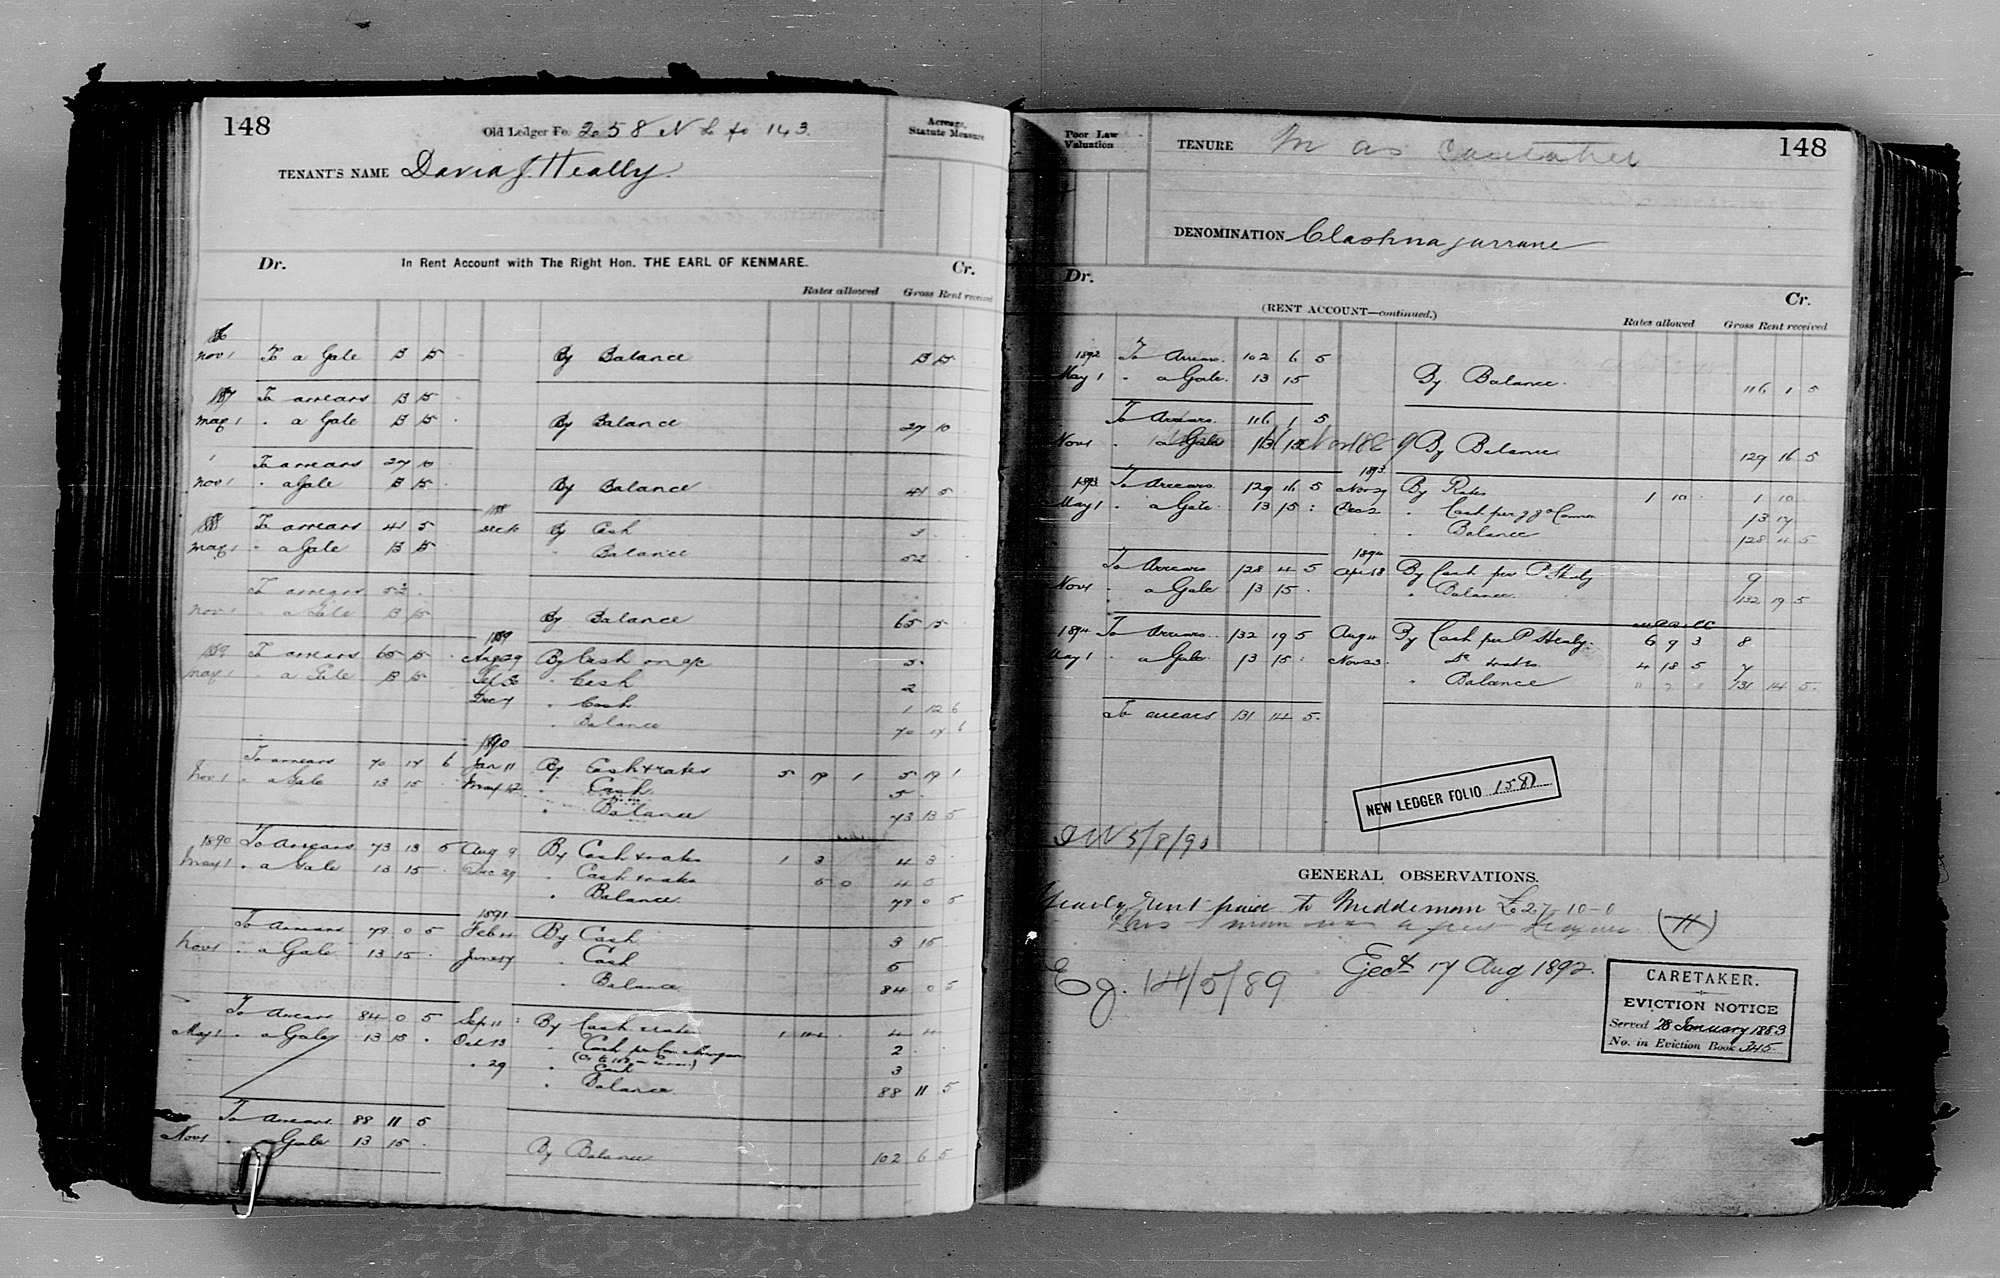 148
Old Ledger Fo. 258 N L fo 143
Acreage, Statute Measure
TENANT'S NAME David J. Healy
Dr. In Rent Account with The Right Hon. THE EARL OF KENMARE. Cr.
Rates allowed Gross Rent received
Nov 1 To a Gale 13 15 By Balance 13 15
To arrears 13 15
May 1 " a Gale 13 15 By Balance 27 10
To arrears 27 10
Nov 1 " a Gale 13 15 By Balance 41 5
To arrears 41 5 Dec 10 By Cash 3
May 1 " a Gale 13 15 " Balance 52
To arrears 52
Nov 1 " a Gale 13 15 By Balance 65 15
1889
1889 To arrears 65 15 Aug 29 By Cash on a/c 5
May 1 " a Gale 13 15 Sep " Cash 2
Dec 7 " Cash 1 12 6
" Balance 70 17 6
1890
To arrears 70 17 6 Jan 11 By Cash & rates 5 19 1 5 19 1
Nov 1 " a Gale 13 15 May 12 " Cash 5
" Balance 73 13 5
1890 To Arrears 73 13 5 Aug 9 By Cash & rates 1 3 4 3
May 1 " a Gale 13 15 Dec 29 " Cash & rates 5 0 4 5
" Balance 79 0 5
1891
To Arrears 79 0 5 Feb By Cash 3 15
Nov 1 " a Gale 13 15 June 17 " Cash 5
" Balance 84 0 5
To Arrears 84 0 5 Sep 11 By Cash & rates 4 4
May 1 " a Gale 13 15 Oct 13 " Cash 2
" 29 " Cash 3
" Balance 88 11 5
To Arrears 88 11 5
Nov 1 " a Gale 13 15 By Balance 102 6 5
Poor Law Valuation
TENURE In as Caretaker
148
DENOMINATION Clashnagarrane
Dr. (RENT ACCOUNT—continued.) Cr.
Rates allowed Gross Rent received
1892 To Arrears 102 6 5
May 1 " a Gale 13 15 By Balance 116 1 5
To Arrears 116 1 5
Nov 1 " a Gale 13 15 By Balance 129 16 5
1893
1893 To Arrears 129 16 5 Nov 29 By Rates 1 10 1 10
May 1 " a Gale 13 15 Dec 2 " Cash per 13 17
" Balance 128 4 5
1894
To Arrears 128 4 5 Apr 18 By Cash per P Healy 9
Nov 1 " a Gale 13 15 " Balance 132 19 5
1894 To Arrears 132 19 5 Aug 11 By Cash per P Healy 6 9 3 8
May 1 " a Gale 13 15 Nov 23 Do rates 4 18 5 7
" Balance 131 14 5
To arrears 131 14 5
NEW LEDGER FOLIO 158
5/8/90
GENERAL OBSERVATIONS.
Yearly Rent paid to Middleman £27-10-0
Ej. 14/5/89
Eject 17 Aug 1892
CARETAKER.
EVICTION NOTICE
Served 28 January 1883
No. in Eviction Book 345